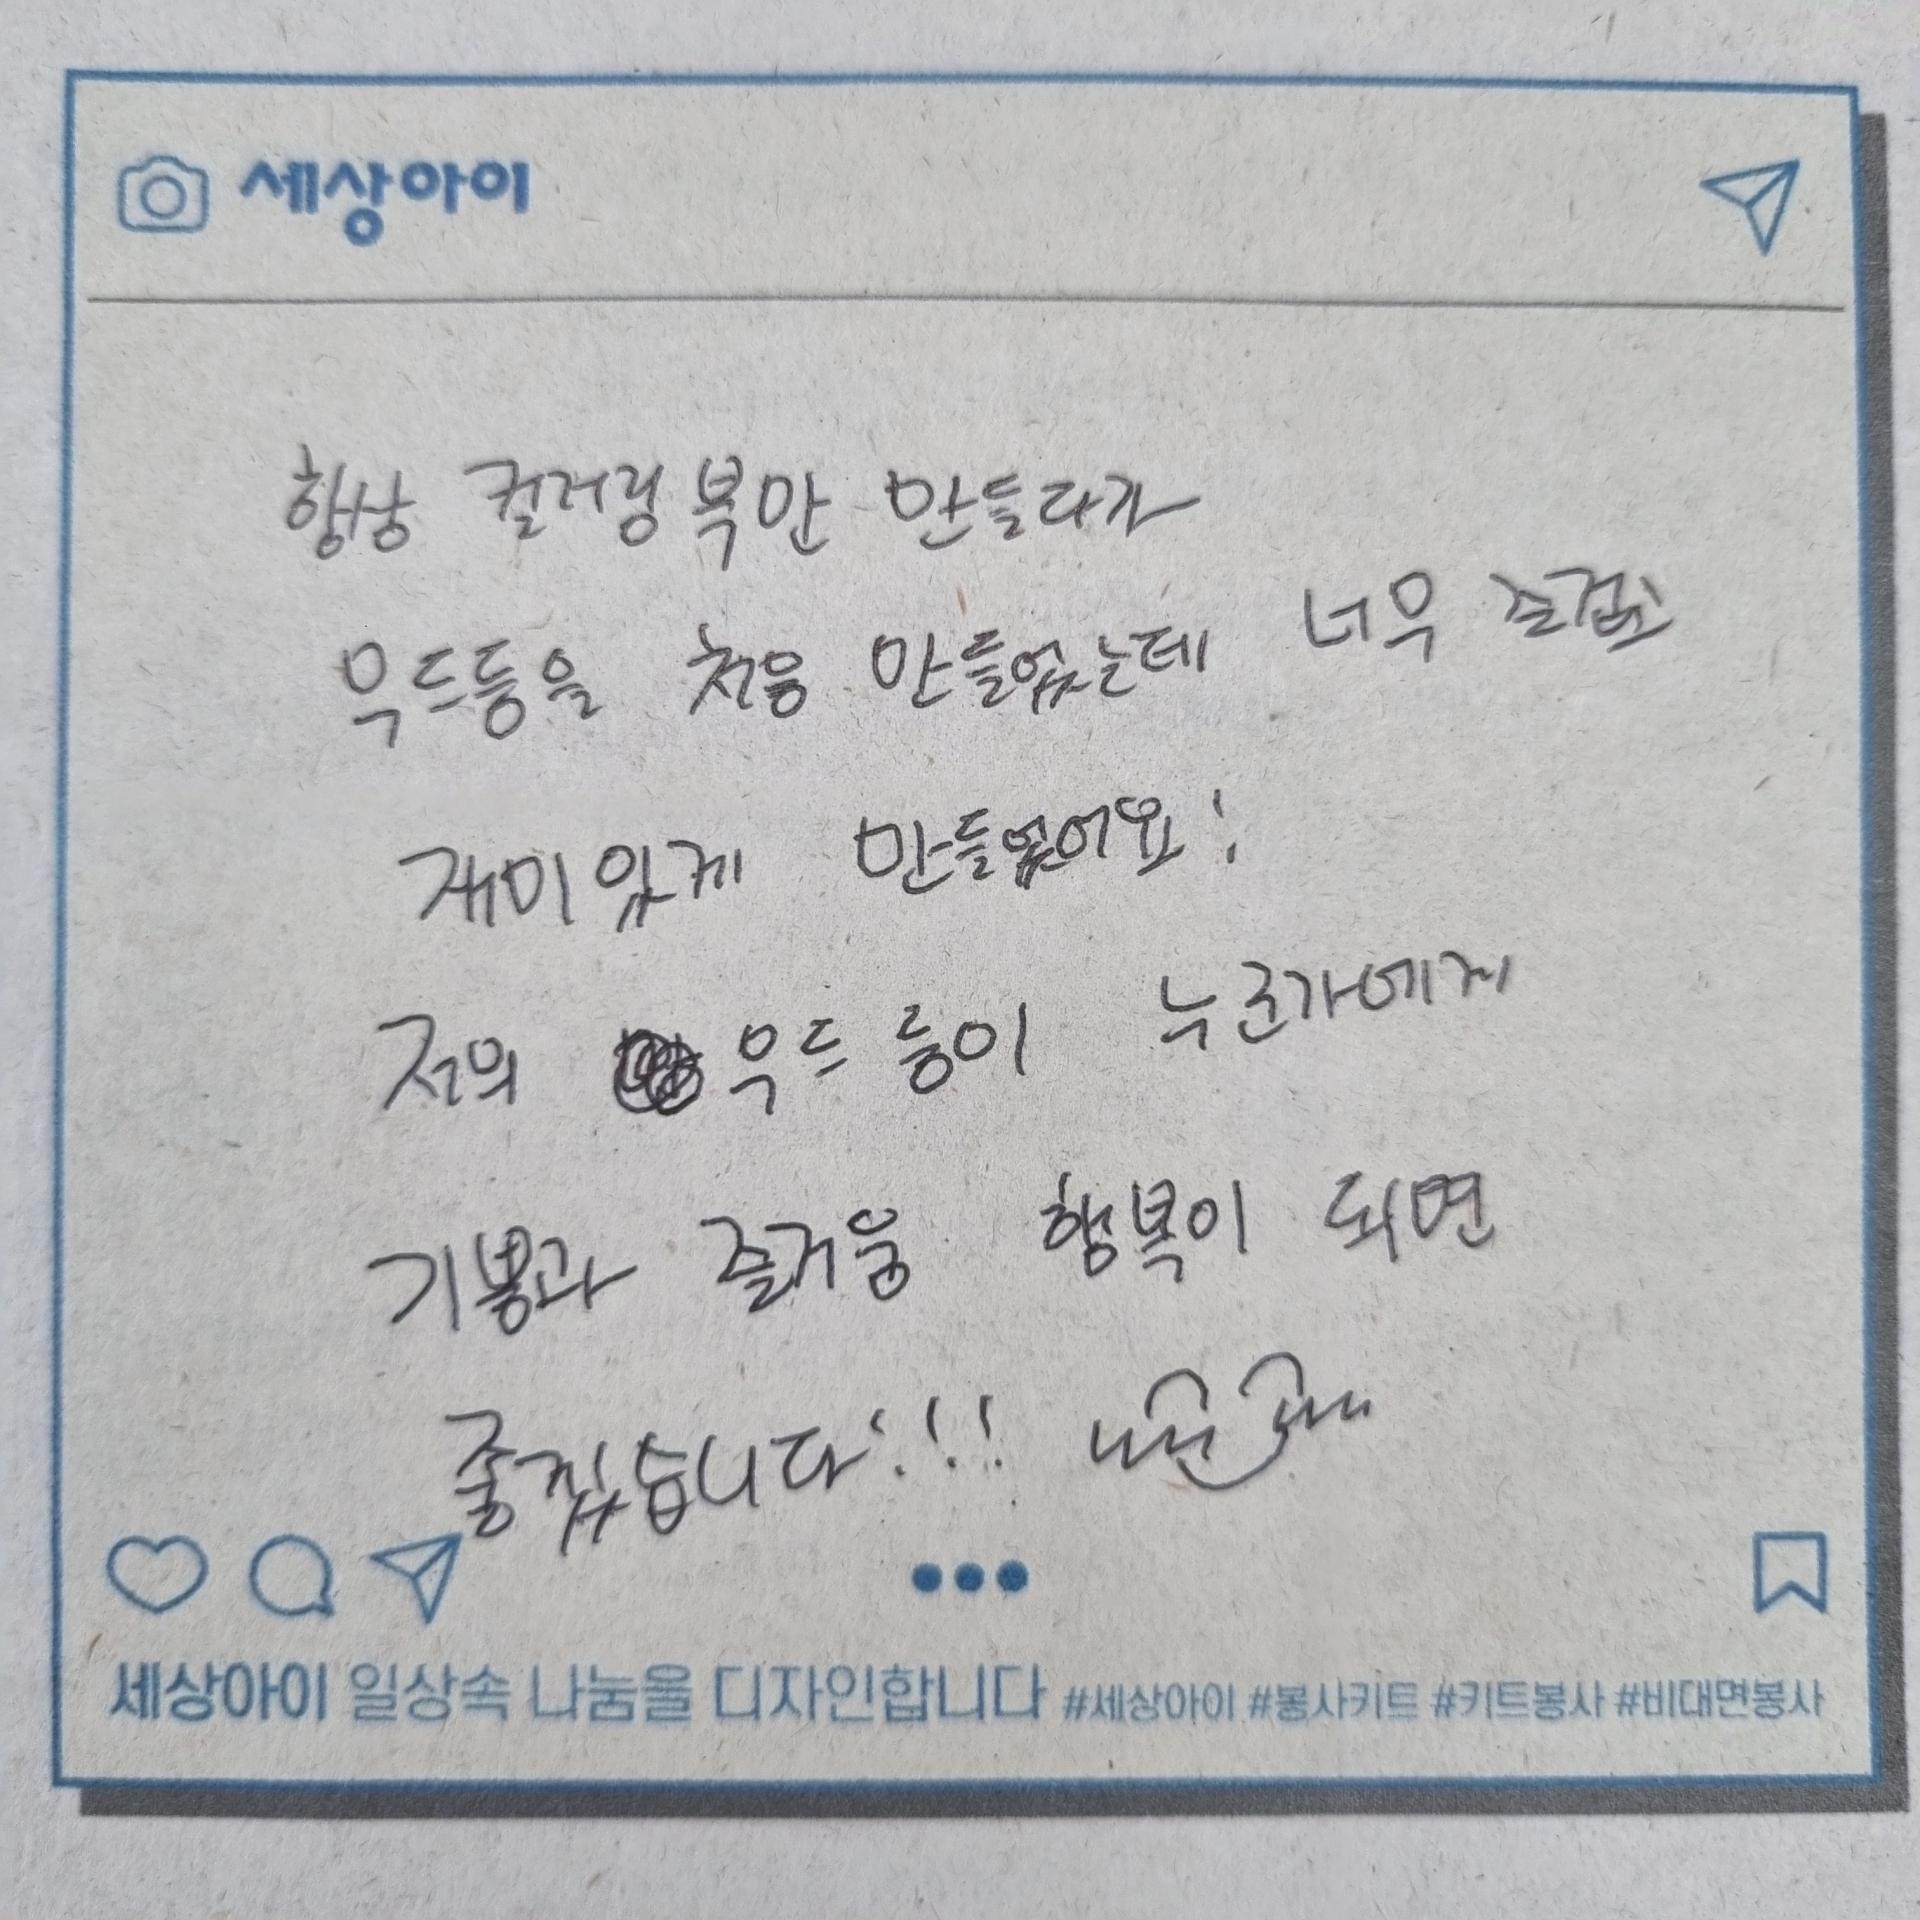 세상아이
항상 컬러링 북만 만들다가
우드등을 처음 만들었는데 너무 즐겁고
재미있게 만들었어요!
저의 우드 등이 누군가에게
기쁨과 즐거움 행복이 되면
좋겠습니다!!!
세상아이 일상속 나눔을 디자인합니다 #세상아이 #봉사키트 #키트봉사 #비대면봉사